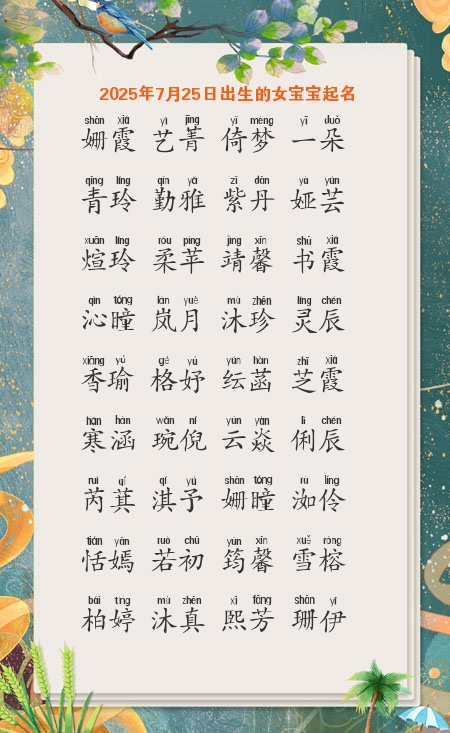 2025年7月25日出生的女宝宝起名
shān xiá yì jīng yǐ mèng yī duǒ
姗霞 艺菁 倚梦 一朵
qīng líng qín yǎ zǐ dān yà yún
青玲 勤雅 紫丹 娅芸
xuān líng róu píng jìng xīn shū xiá
煊玲 柔苹 靖馨 书霞
qìn tóng lán yuè mù zhēn líng chén
沁瞳 岚月 沐珍 灵辰
xiāng yú gé yú yún hàn zhī xiá
香瑜 格妤 纭菡 芝霞
hán hán wǎn ní yún yàn lì chén
寒涵 琬倪 云焱 俐辰
ruì qí qí yǔ shān tóng rù líng
芮萁 淇予 姗瞳 洳伶
tián yān ruò chū yún xīn xuě róng
恬嫣 若初 筠馨 雪榕
bǎi tíng mù zhēn xī fāng shān yī
柏婷 沐真 熙芳 珊伊